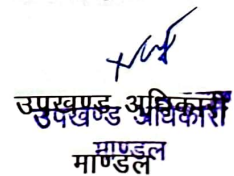 उपखण्ड अधिकारी
उपखण्ड अधिकारी
माण्डल
माण्डल